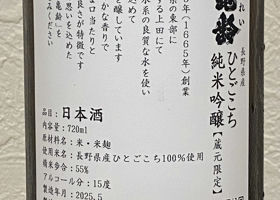 れい
長野県産
ひとごこち
純米吟醸【蔵元限定】
(1665年)創業
県の東部に
する上田にて
水系の良質な水を使い
醸しています
かな香りで
な口当たりと
良さが特徴です
思いを込めた
みください
品目:日本酒
内容量:720ml
原材料名:米・米麹
原料米:長野県産ひとごこち100%使用
精米歩合:55%
アルコール分:15度
製造年月:2025.5